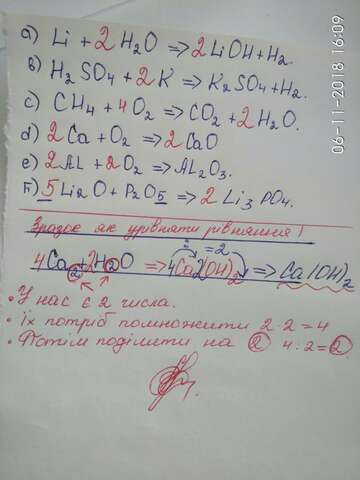 a) Li + 2H₂O => 2LiOH + H₂.
b) H₂SO₄ + 2K => K₂SO₄ + H₂.
c) CH₄ + 4O₂ => CO₂ + 2H₂O.
d) 2Ca + O₂ => 2CaO
e) 2AL + 2O₂ => AL₂O₃.
F) 5Li₂O + P₂O₅ => 2Li₃PO₄.
Зразок як урівняти рівняння!
= 2
4Ca₂ + 2H₂O => 4Ca2(OH)₂ => Ca(OH)₂
• У нас є 2 числа.
• їх потріб помножити 2·2=4
• Потім поділити на 2 4:2=2.
06-11-2018 16:09